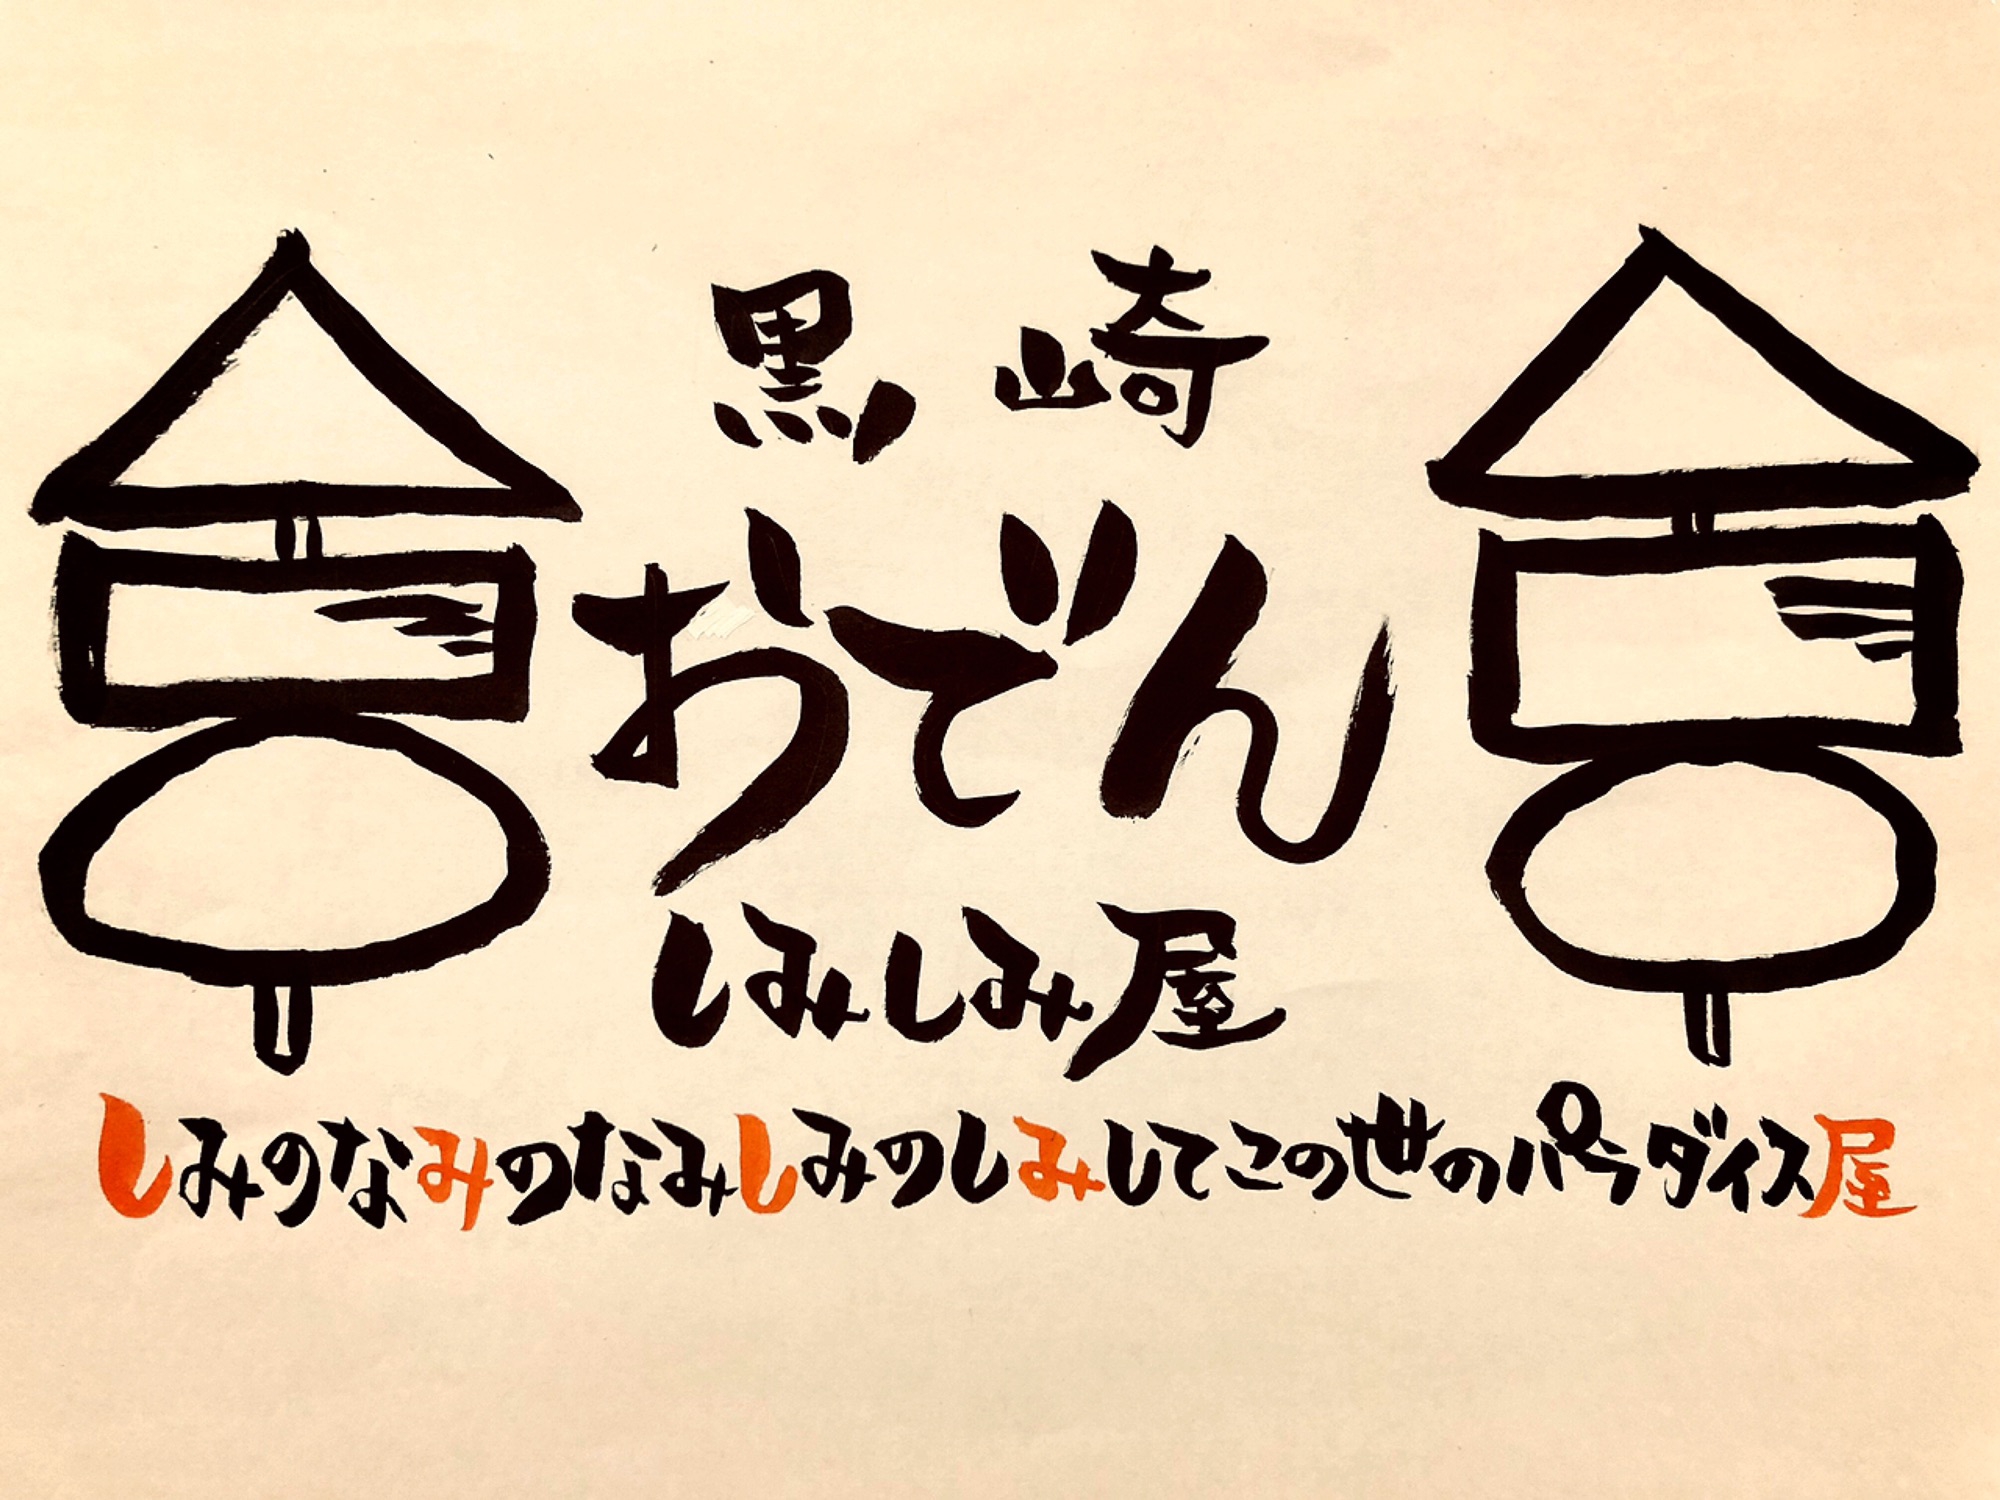 黒崎
おでん
しみしみ屋
しみのなみのなみしみのしみしてこの世のパラダイス屋